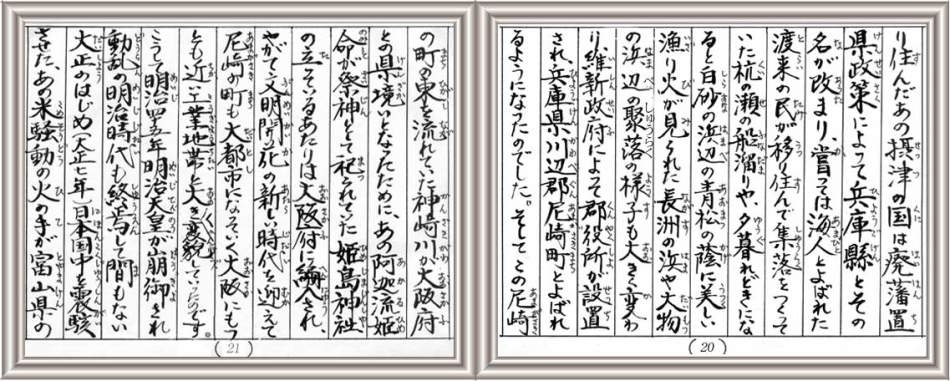 り住んだあの摂津の国は廃藩置
県政策によって兵庫縣とその
名が改まり、嘗つては海人とよばれた
渡来の民が移り住んで集落をつくって
いた杭の瀬の船溜りや、夕暮れどきにな
ると白砂の浜辺の青松の蔭に美しい
漁り火が見られた長洲の浜や大物
の浜辺の聚落の様子も大きく変わ
り、維新政府によって郡役所が設置
され、兵庫県川辺郡尼崎町とよばれ
るようになったのでした。そしてこの尼崎
(20)
の町の東を流れていた神崎川が大阪府
との県境いとなったために、あの阿迦流姫
命が祭神として祀られていた姫島神社
の立っているあたりは大阪府に編入され、
やがて文明開花の新しい時代を迎えて
尼崎の町も大都市になっていく大阪にもっ
とも近い工業地帯と大きく変貌していったのです。
こうして明治四五年明治天皇が崩御され
動乱の明治時代も終焉して間もない
大正のはじめ(大正七年)日本国中を震駭
させた、あの米騒動の火の手が富山県の
(21)